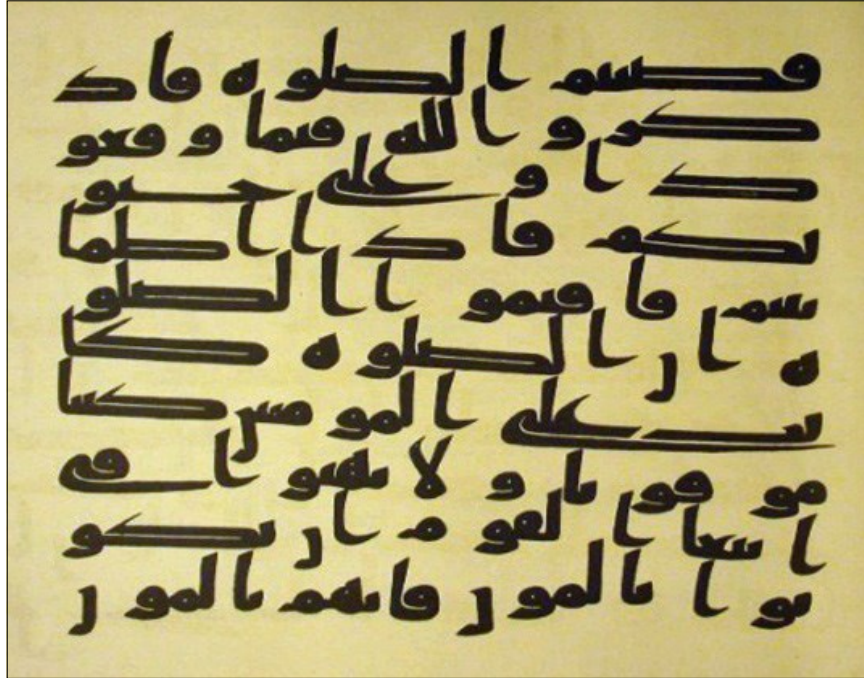 قضيتم الصلوه فاذ
كروا الله قيما وقعو
دا وعلى جنو
بكم فاذا اطما
ننتم فاقيموا الصلو
ه ان الصلوه كا
نت على المومنين كتبا
موقوتا ولا تهنوا في
ابتغا القوم ان تكو
نوا تالمون فانهم يالمون